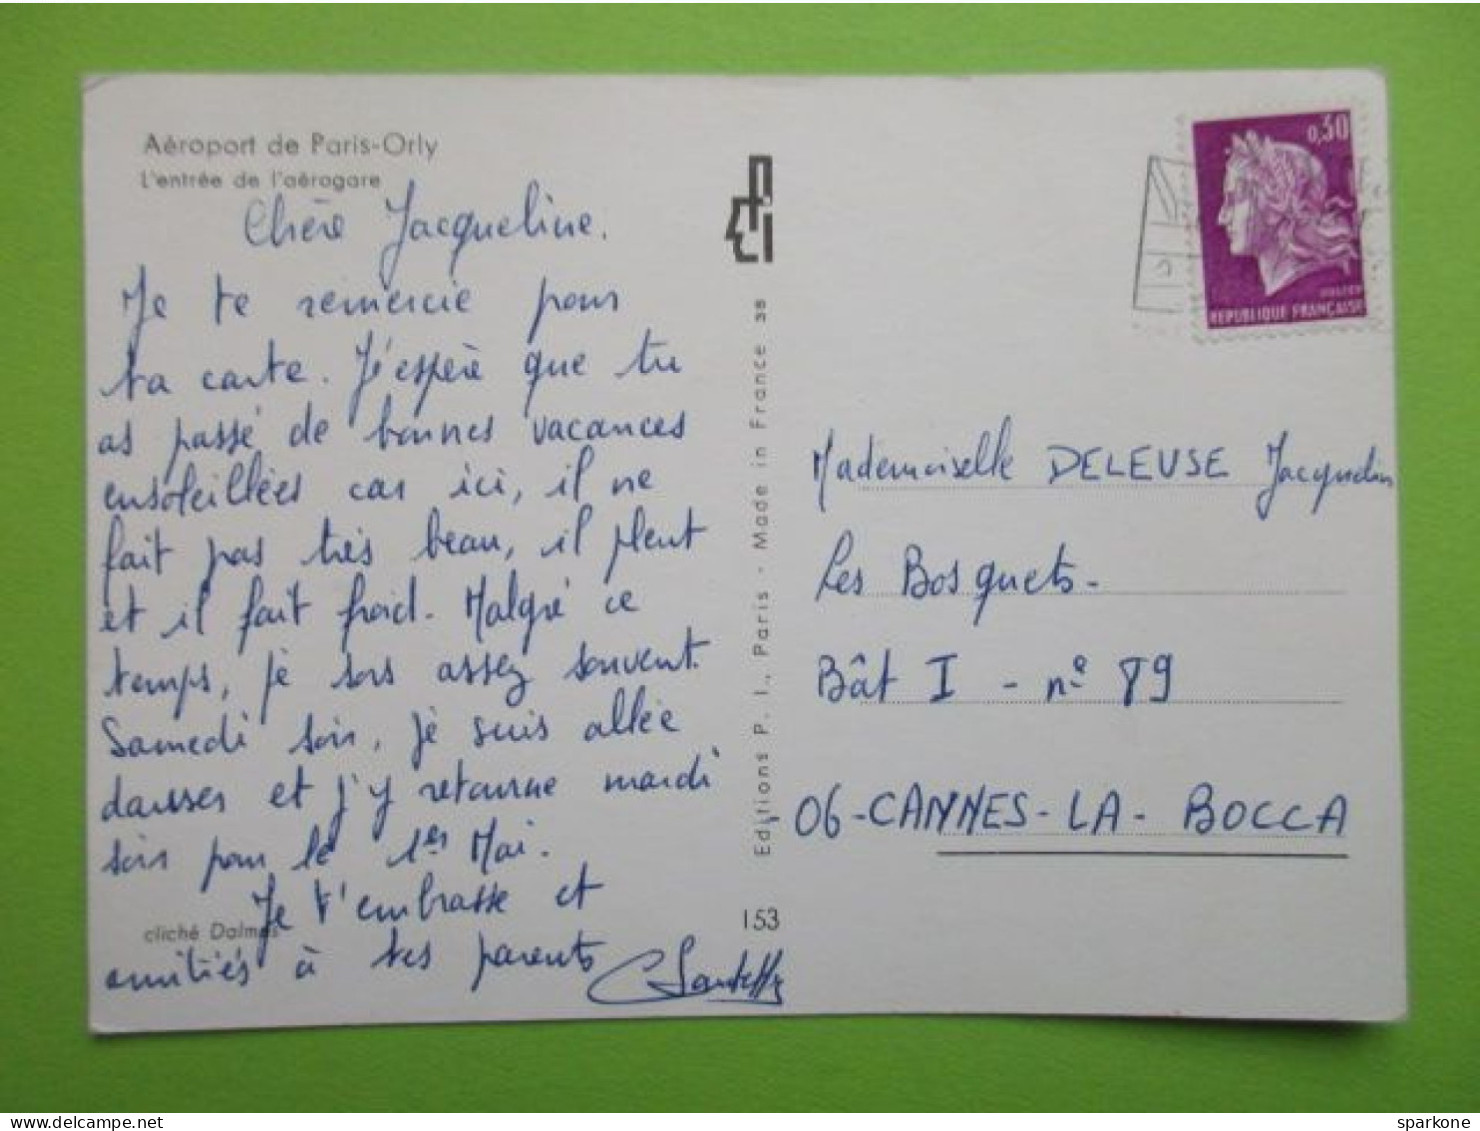 Aéroport de Paris-Orly
L'entrée de l'aérogare
Chère Jacqueline.
Je te remercie pour
ta carte. J'espère que tu
as passé de bonnes vacances
ensoleillées car ici, il ne
fait pas très beau, il pleut
et il fait froid. Malgré ce
temps, je sors assez souvent.
Samedi soir, je suis allée
danser et j'y retourne mardi
soir pour le 1er Mai.
Je t'embrasse et
amitiés à tes parents
cliché Dalmas
Editions P. I., Paris - Made in France
153
0,30
REPUBLIQUE FRANÇAISE
Mademoiselle DELEUSE Jacquelin
Les Bosquets -
Bât I - n° 89
06 - CANNES - LA - BOCCA
sparkone